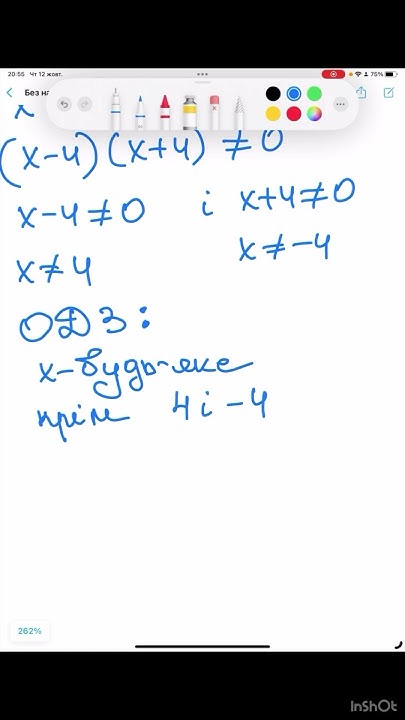 20:55 Чт 12 жовт. 75%
Без на
(x-4)(x+4) ≠ 0
x-4≠0 і x+4≠0
x≠4 x≠-4
ОДЗ:
x-будь-яке
крім 4 і -4
262%
InShOt